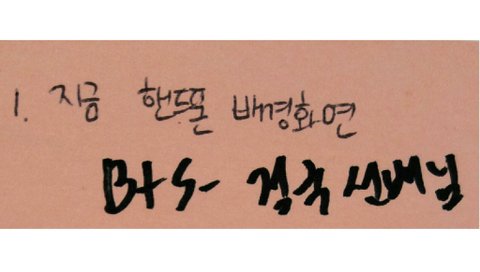 1. 지금 핸드폰 배경화면
BTS- 정국 선배님